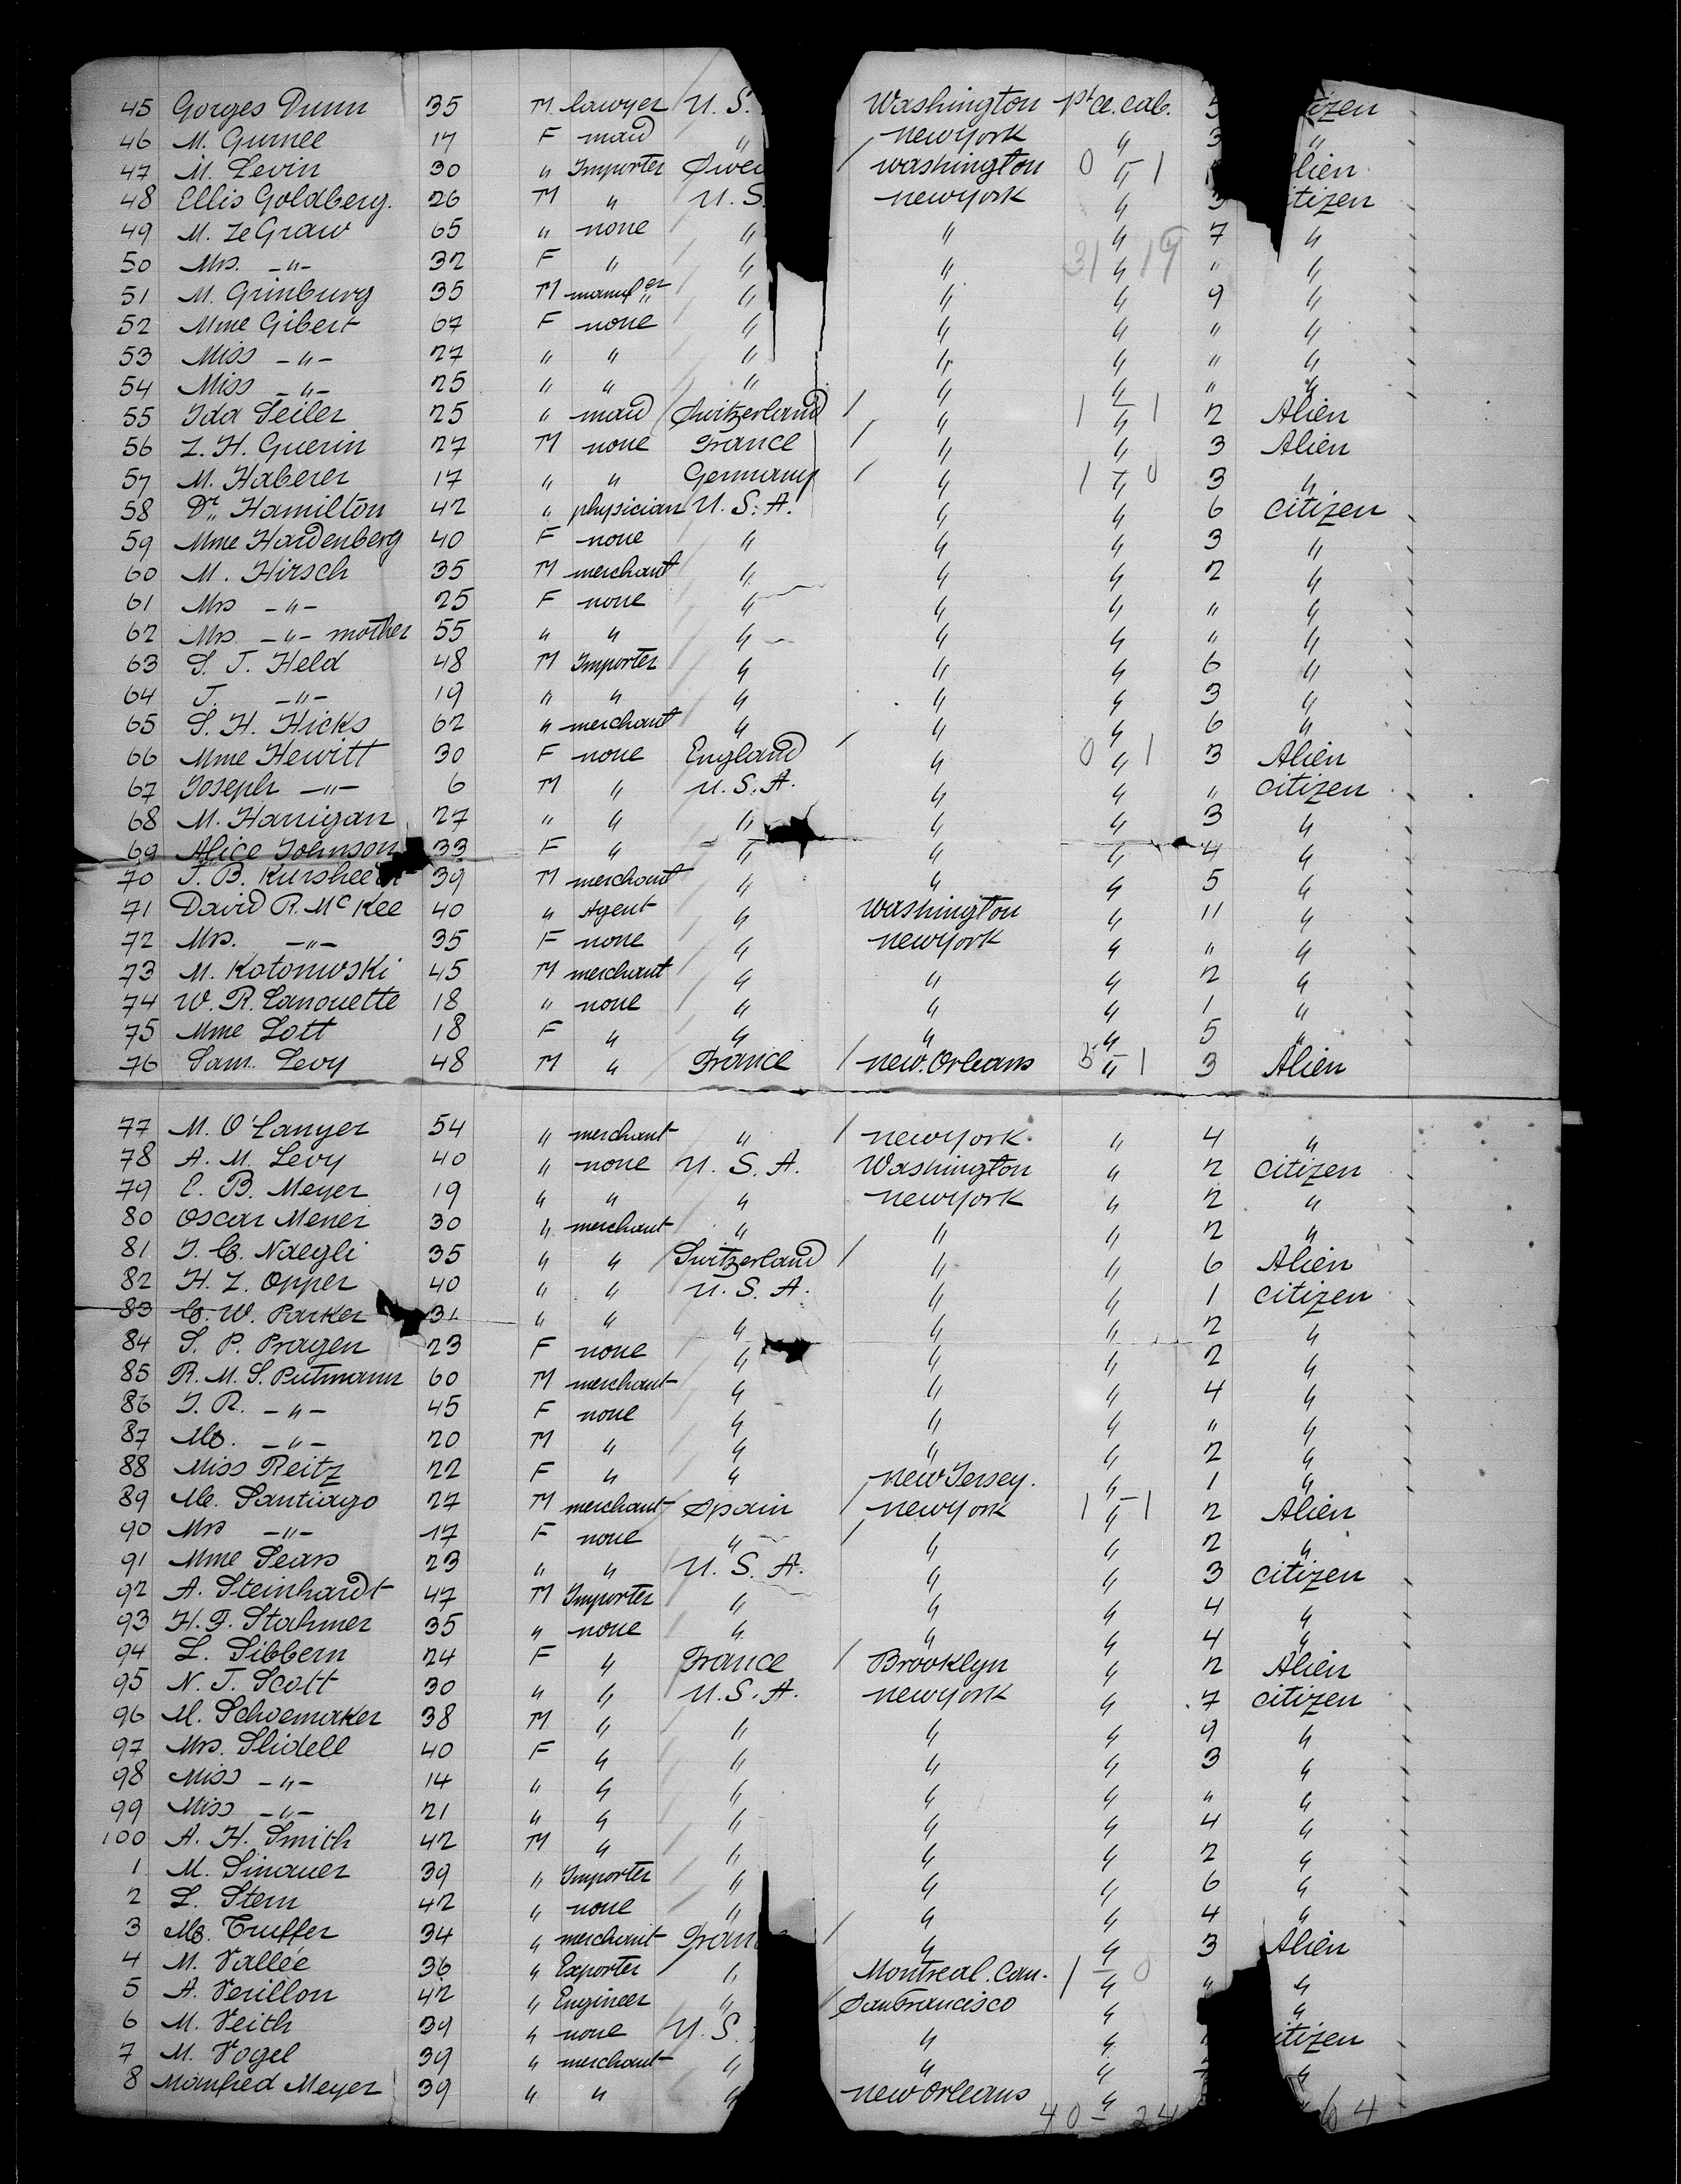 45 Gorges Dunn 35 M lawyer U. S. Washington 1st cl. cab. 5 izen
46 M. Gurnee 17 F maid " newyork " 3 "
47 M. Levin 30 " Importer Swe / washington 0 " 1 lien
48 Ellis Goldberg. 26 M " U. S. newyork " 3 tizen
49 M. LeGraw 65 " none " " " 7 "
50 Mrs. -"- 32 F " " " 31 " 19 " "
51 M. Grinburg 35 M manufer " " " 9 "
52 Mme Gibert 67 F none " " " " "
53 Miss -"- 27 " " " " " " "
54 Miss -"- 25 " " " " " " "
55 Ida Seiler 25 " maid Switzerland / " 1 " 1 2 Alien
56 L. H. Guerin 27 M none France / " " 3 Alien
57 M. Haberer 17 " " Germany / " 1 " 0 3 "
58 Dr. Hamilton 42 " physician U. S. A. " " 6 citizen
59 Mme Hardenberg 40 F none " " " 3 "
60 M. Hirsch 35 M merchant " " " 2 "
61 Mrs -"- 25 F none " " " " "
62 Mrs. -"- mother 55 " " " " " " "
63 S. J. Held 48 M Importer " " " 6 "
64 J. -"- 19 " " " " " 3 "
65 S. H. Hicks 62 " merchant " " " 6 "
66 Mme Hewitt 30 F none England / " 0 " 1 3 Alien
67 Joseph -"- 6 M " U. S. A. " " " citizen
68 M. Hanigan 27 " " " " " 3 "
69 Alice Johnson 33 F " " " " 4 "
70 J. B. Kursheedt 39 M merchant " " " 5 "
71 David R. Mc Kee 40 " Agent " washington " 11 "
72 Mrs. -"- 35 F none " newyork " " "
73 M. Kotonwski 45 M merchant " " " 2 "
74 W. R. Lanouette 18 " none " " " 1 "
75 Mme Lott 18 F " " " " 5 "
76 Sam. Levy 48 M " France / new. Orleans 5 " 1 3 Alien
77 M. O'Lanyer 54 " merchant " / newyork. " 4 "
78 A. M. Levy 40 " none U. S. A. Washington " 2 citizen
79 E. B. Meyer 19 " " " newyork " 2 "
80 Oscar Mener 30 " merchant " " " 2 "
81 J. C. Naegli 35 " " Switzerland / " " 6 Alien
82 H. L. Opper 40 " " U. S. A. " " 1 citizen
83 C. W. Parker 31 " " " " " 2 "
84 S. P. Pragen 23 F none " " " 2 "
85 R. M. S. Putmann 60 M merchant " " " 4 "
86 J. R. -"- 45 F none " " " " "
87 M. -"- 20 M " " " " 2 "
88 Miss Reitz 22 F " " new Jersey. " 1 "
89 M. Santiago 27 M merchant Spain / newyork 1 " 1 2 Alien
90 Mrs -"- 17 F none " / " " 2 "
91 Mme Sears 23 " " U. S. A. " " 3 citizen
92 A. Steinhardt 47 M Importer " " " 4 "
93 H. F. Stahmer 35 " none " " " 4 "
94 L. Sibbern 24 F " France / Brooklyn " 2 Alien
95 N. J. Scott 30 " " U. S. A. newyork " 7 citizen
96 M. Schoemaker 38 M " " " " 9 "
97 Mrs. Slidell 40 F " " " " 3 "
98 Miss -"- 14 " " " " " " "
99 Miss -"- 21 " " " " " 4 "
100 A. H. Smith 42 M " " " " 2 "
1 M. Sinauer 39 " Importer " " " 6 "
2 L. Stern 42 " none " " " 4 "
3 M. Truffer 34 " merchant Fran / " " 3 Alien
4 M. Vallée 36 " Exporter " Montreal. Can. 1 " 0 " "
5 A. Verillon 42 " Engineer " / San Francisco " "
6 M. Veith 39 " none U. S. " " itizen
7 M. Vogel 39 " merchant " " " "
8 Manfred Meyer 39 " " " new Orleans "
40 - 24 64